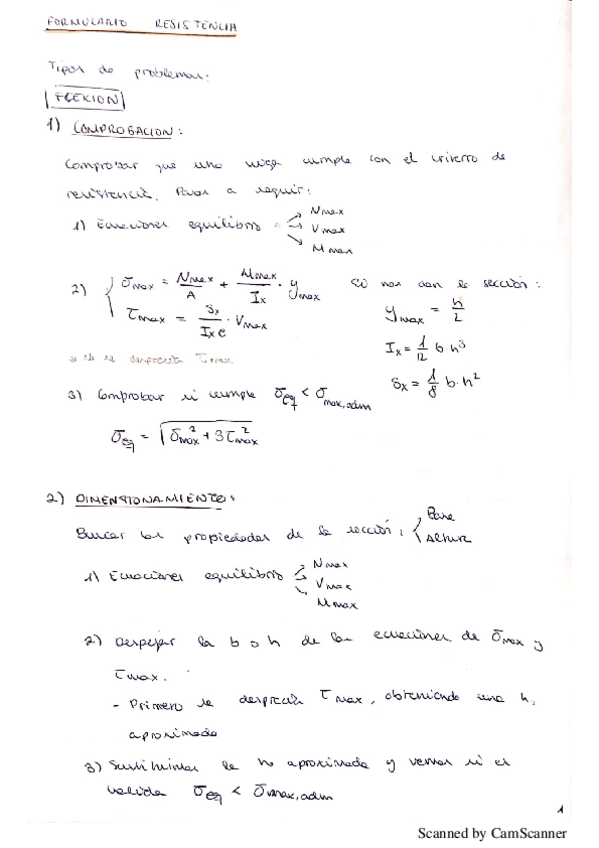 FORMULARIO RESISTENCIA
Tipos de problemas:
FLEXION
1) COMPROBACION:
Comprobar que una viga cumple con el criterio de
resistencia. Pasos a seguir:
1) Ecuaciones equilibrio → Nmax
Vmax
Mmax
2) { σmax = Nmax/A + Mmax/Ix · ymax
τmax = Sx/(Ix e) · Vmax
Si nos dan la sección:
ymax = h/2
Ix = 1/12 b·h³
Sx = 1/8 b·h²
No se desprecia τmax
3) Comprobar si cumple σeq < σmax,adm
σeq = √(σmax² + 3τmax²)
2) DIMENSIONAMIENTO:
Buscar las propiedades de la sección: { Base
Altura
1) Ecuaciones equilibrio → Nmax
Vmax
Mmax
2) Despejar la b o h de las ecuaciones de σmax y
τmax.
- Primero se desprecia τmax, obteniendo una h,
aproximada
3) Sustituimos la h aproximada y vemos si es
valida σeq < σmax,adm
1
Scanned by CamScanner